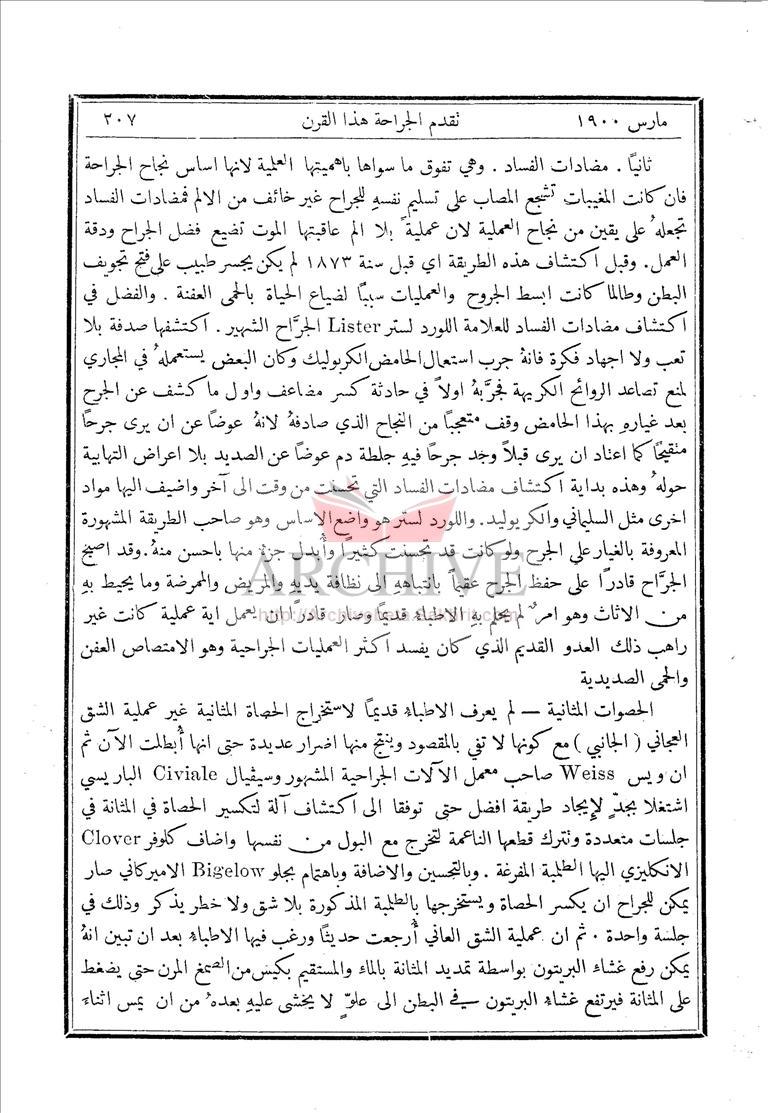 مارس ١٩٠٠ تقدم الجراحة هذا القرن ٢٠٧
ثانيًا . مضادات الفساد . وهي تفوق ما سواها باهميتها العلمية لانها اساس نجاح الجراحة
فان كانت المغيبات تشجع المصاب على تسليم نفسهِ للجراح غير خائف من الالم فمضادات الفساد
تجعلهُ على يقين من نجاح العملية لان عمليةً بلا الم عاقبتها الموت تضيع فضل الجراح ودقة
العمل . وقبل اكتشاف هذه الطريقة اي قبل سنة ١٨٧٣ لم يكن يجسر طبيب على فتح تجويف
البطن وطالما كانت ابسط الجروح والعمليات سببًا لضياع الحياة بالحمى العفنة . والفضل في
اكتشاف مضادات الفساد للعلامة اللورد لستر Lister الجرَّاح الشهير . اكتشفها صدفة بلا
تعب ولا اجهاد فكرة فانهُ جرب استعمال الحامض الكربوليك وكان البعض يستعملهُ في المجاري
لمنع تصاعد الروائح الكريهة فجرَّبهُ اولاً في حادثة كسر مضاعف واول ما كشف عن الجرح
بعد غياره بهذا الحامض وقف متعجبًا من النجاح الذي صادفهُ لانهُ عوضًا عن ان يرى جرحًا
متقيحًا كما اعتاد ان يرى قبلاً وجد جرحًا فيهِ جلطة دم عوضًا عن الصديد بلا اعراض التهابية
حولهُ وهذه بداية اكتشاف مضادات الفساد التي تحسنت من وقت الى آخر واضيف اليها مواد
اخرى مثل السليماني والكريوليد. واللورد لستر هو واضع الاساس وهو صاحب الطريقة المشهورة
المعروفة بالغيار على الجرح ولو كانت قد تحسنت كثيرًا وأُبدل جزءٌ منها باحسن منهُ. وقد اصبح
الجرَّاح قادرًا على حفظ الجرح عقيمًا بانتباههِ الى نظافة يديهِ والمريض والممرضة وما يحيط بهِ
من الاثاث وهو امرٌ لم يحلم بهِ الاطباء قديمًا وصار قادرًا ان يعمل اية عملية كانت غير
راهب ذلك العدو القديم الذي كان يفسد اكثر العمليات الجراحية وهو الامتصاص العفن
والحمى الصديدية
الحصوات المثانية — لم يعرف الاطباء قديمًا لاستخراج الحصاة المثانية غير عملية الشق
العجاني ( الجانبي ) مع كونها لا تفي بالمقصود وينتج منها اضرار عديدة حتى انها أُبطلت الآن ثم
ان ويس Weiss صاحب معمل الآلات الجراحية المشهور وسيڤيال Civiale الباريسي
اشتغلا بجدٍّ لإيجاد طريقة افضل حتى توفقا الى اكتشاف آلة لتكسير الحصاة في المثانة في
جلسات متعددة وتترك قطعها الناعمة لتخرج مع البول من نفسها واضاف كلوفر Clover
الانكليزي اليها الطلمبة المفرغة . وبالتحسين والاضافة وباهتمام بجلو Bigelow الاميركاني صار
يمكن للجراح ان يكسر الحصاة ويستخرجها بالطلمبة المذكورة بلا شق ولا خطر يذكر وذلك في
جلسة واحدة . ثم ان عملية الشق العاني أُرجعت حديثًا ورغب فيها الاطباء بعد ان تبين انهُ
يمكن رفع غشاء البريتون بواسطة تمديد المثانة بالماء والمستقيم بكيس من الصمغ المرن حتى يضغط
على المثانة فيرتفع غشاء البريتون في البطن الى علوٍّ لا يخشى عليهِ بعدهُ من ان يمس اثناء
ARCHIVE